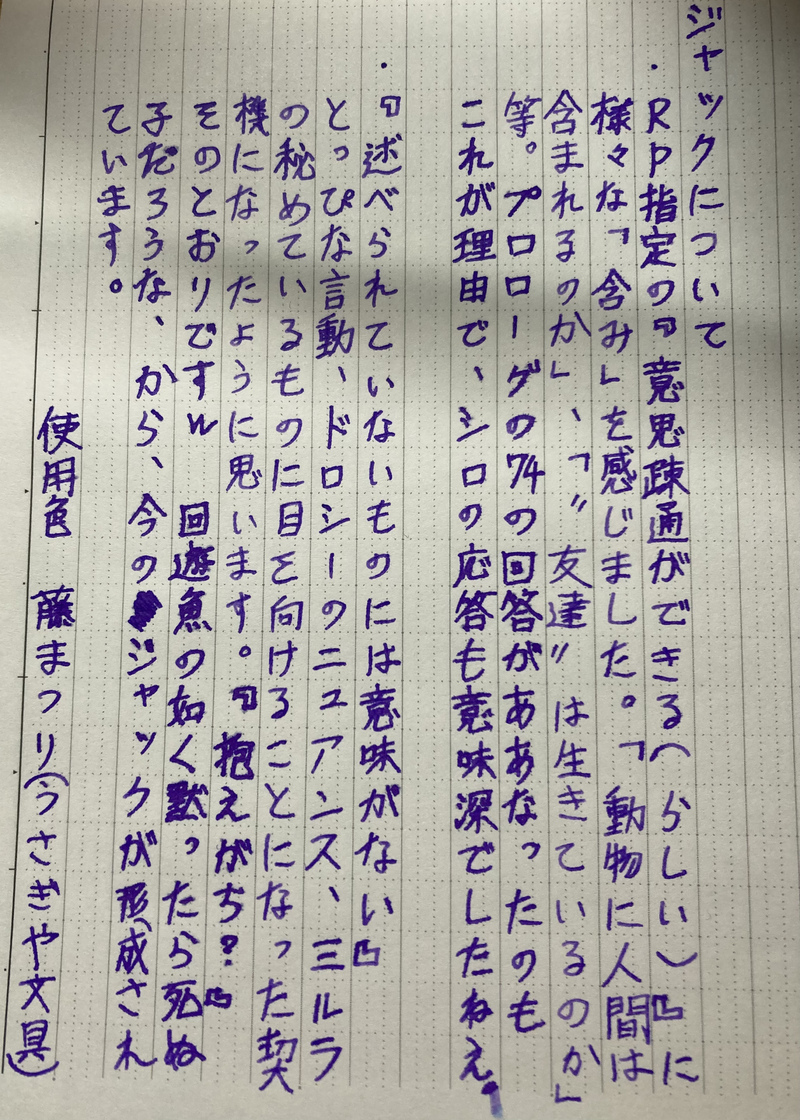 ジャックについて
・RP指定の『意思疎通ができる(らしい)』に
様々な「含み」を感じました。「動物に人間は
含まれるのか」、「〝友達〟は生きているのか」
等。プロローグの74の回答がああなったのも
これが理由で、シロの応答も意味深でしたねえ。
・『述べられていないものには意味がない』
とっぴな言動、ドロシーのニュアンス、ミルラ
の秘めているものに目を向けることになった契
機になったように思います。『抱えがち?』
そのとおりですw 回遊魚の如く黙ったら死ぬ
子だろうな、から、今のジャックが形成され
ています。
使用色 藤まつり(うさぎや文具)